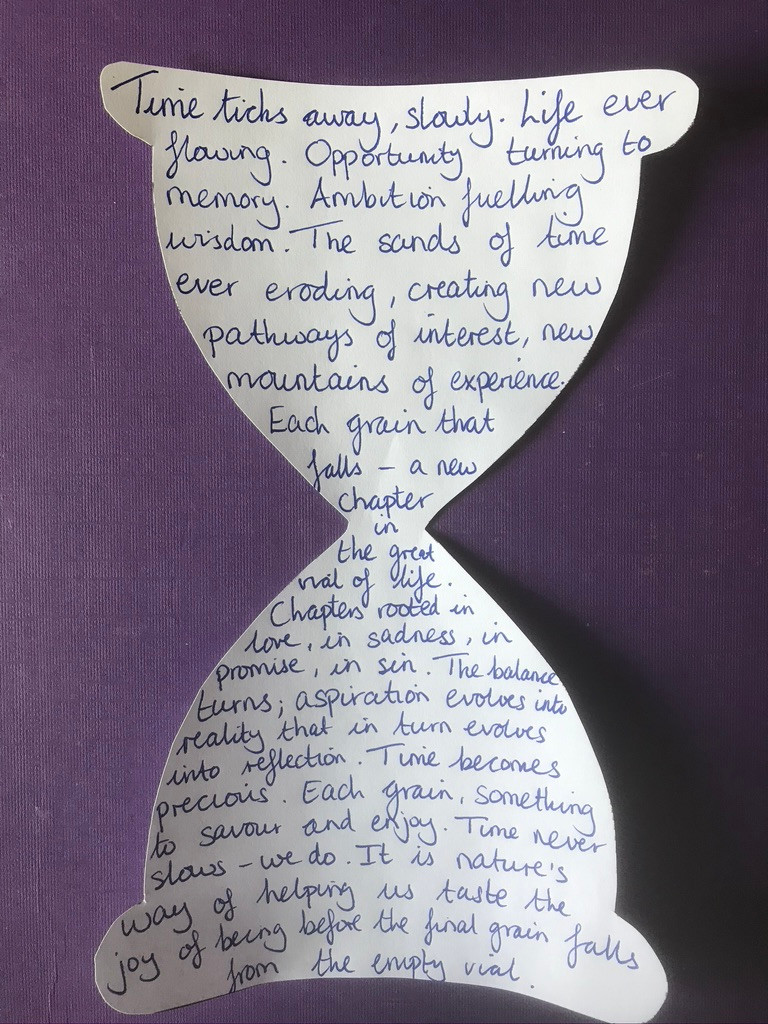 Time ticks away, slowly. Life ever
flowing. Opportunity turning to
memory. Ambition fuelling
wisdom. The sands of time
ever eroding, creating new
pathways of interest, new
mountains of experience.
Each grain that
falls – a new
chapter
in
the great
vial of life.
Chapters rooted in
love, in sadness, in
promise, in sin. The balance
turns; aspiration evolves into
reality that in turn evolves
into reflection. Time becomes
precious. Each grain, something
to savour and enjoy. Time never
slows – we do. It is nature's
way of helping us taste the
joy of being before the final grain falls
from the empty vial.